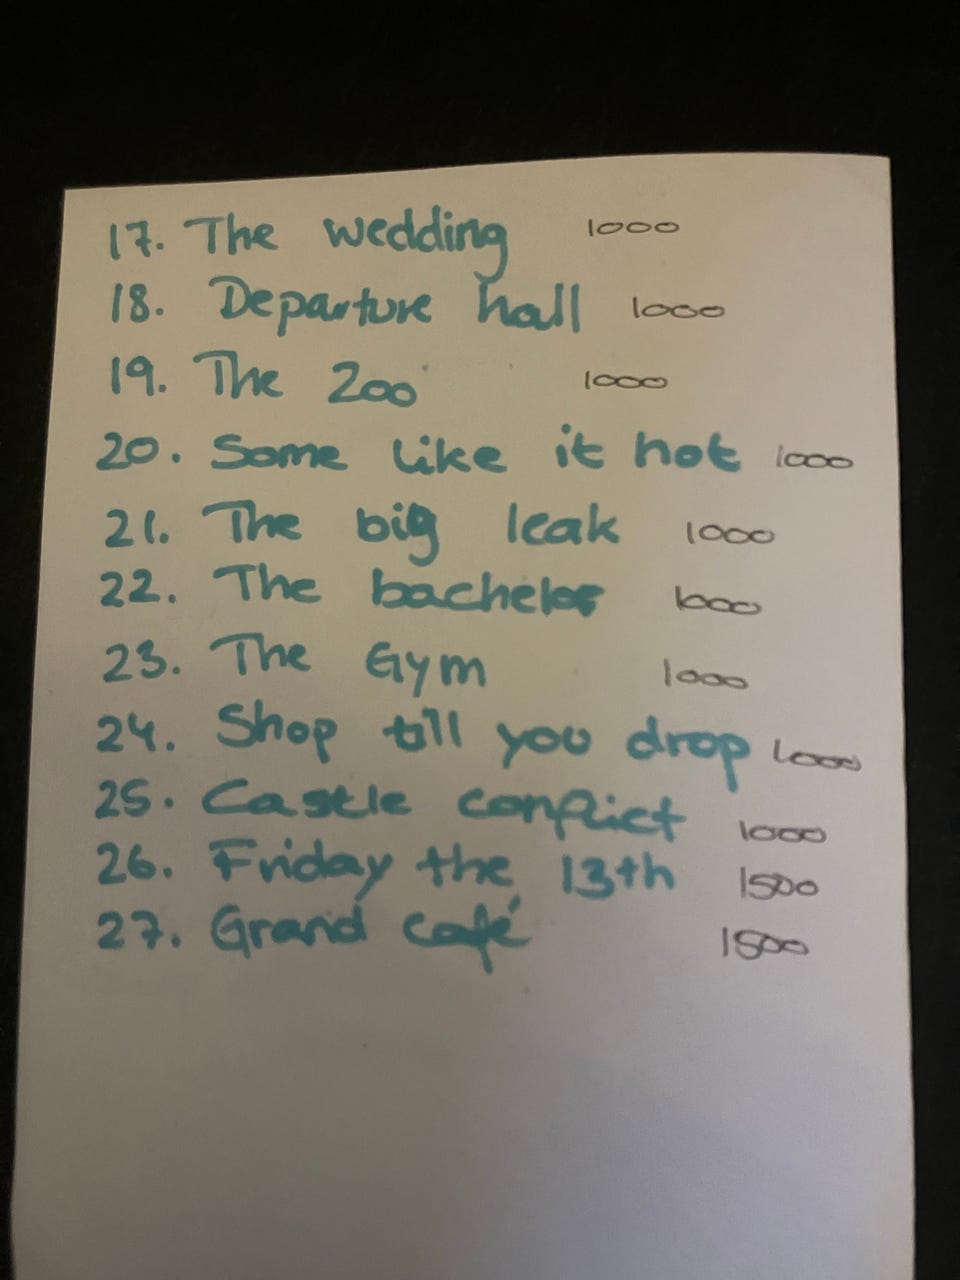 17. The wedding 1000
18. Departure hall 1000
19. The Zoo 1000
20. Some like it hot 1000
21. The big leak 1000
22. The bachelor 1000
23. The Gym 1000
24. Shop till you drop 1000
25. Castle conflict 1000
26. Friday the 13th 1500
27. Grand café 1500